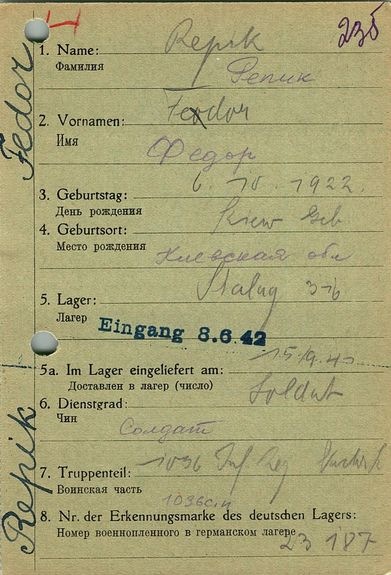 235
1. Name: Repik
Фамилия Репик
2. Vornamen: Feodor
Имя Федор
3. Geburtstag: 6. 10. 1922.
День рождения
4. Geburtsort: Kiew Geb
Место рождения Киевская обл
5. Lager: Stalag
Лагер
Eingang 8.6.42
5a. Im Lager eingeliefert am:
Доставлен в лагер (число)
6. Dienstgrad: Soldat
Чин Солдат
7. Truppenteil: 1036 Inf. Reg
Воинская часть 1036сп
8. Nr. der Erkennungsmarke des deutschen Lagers:
Номер военнопленного в германском лагере 23 187
Fedor
Repik